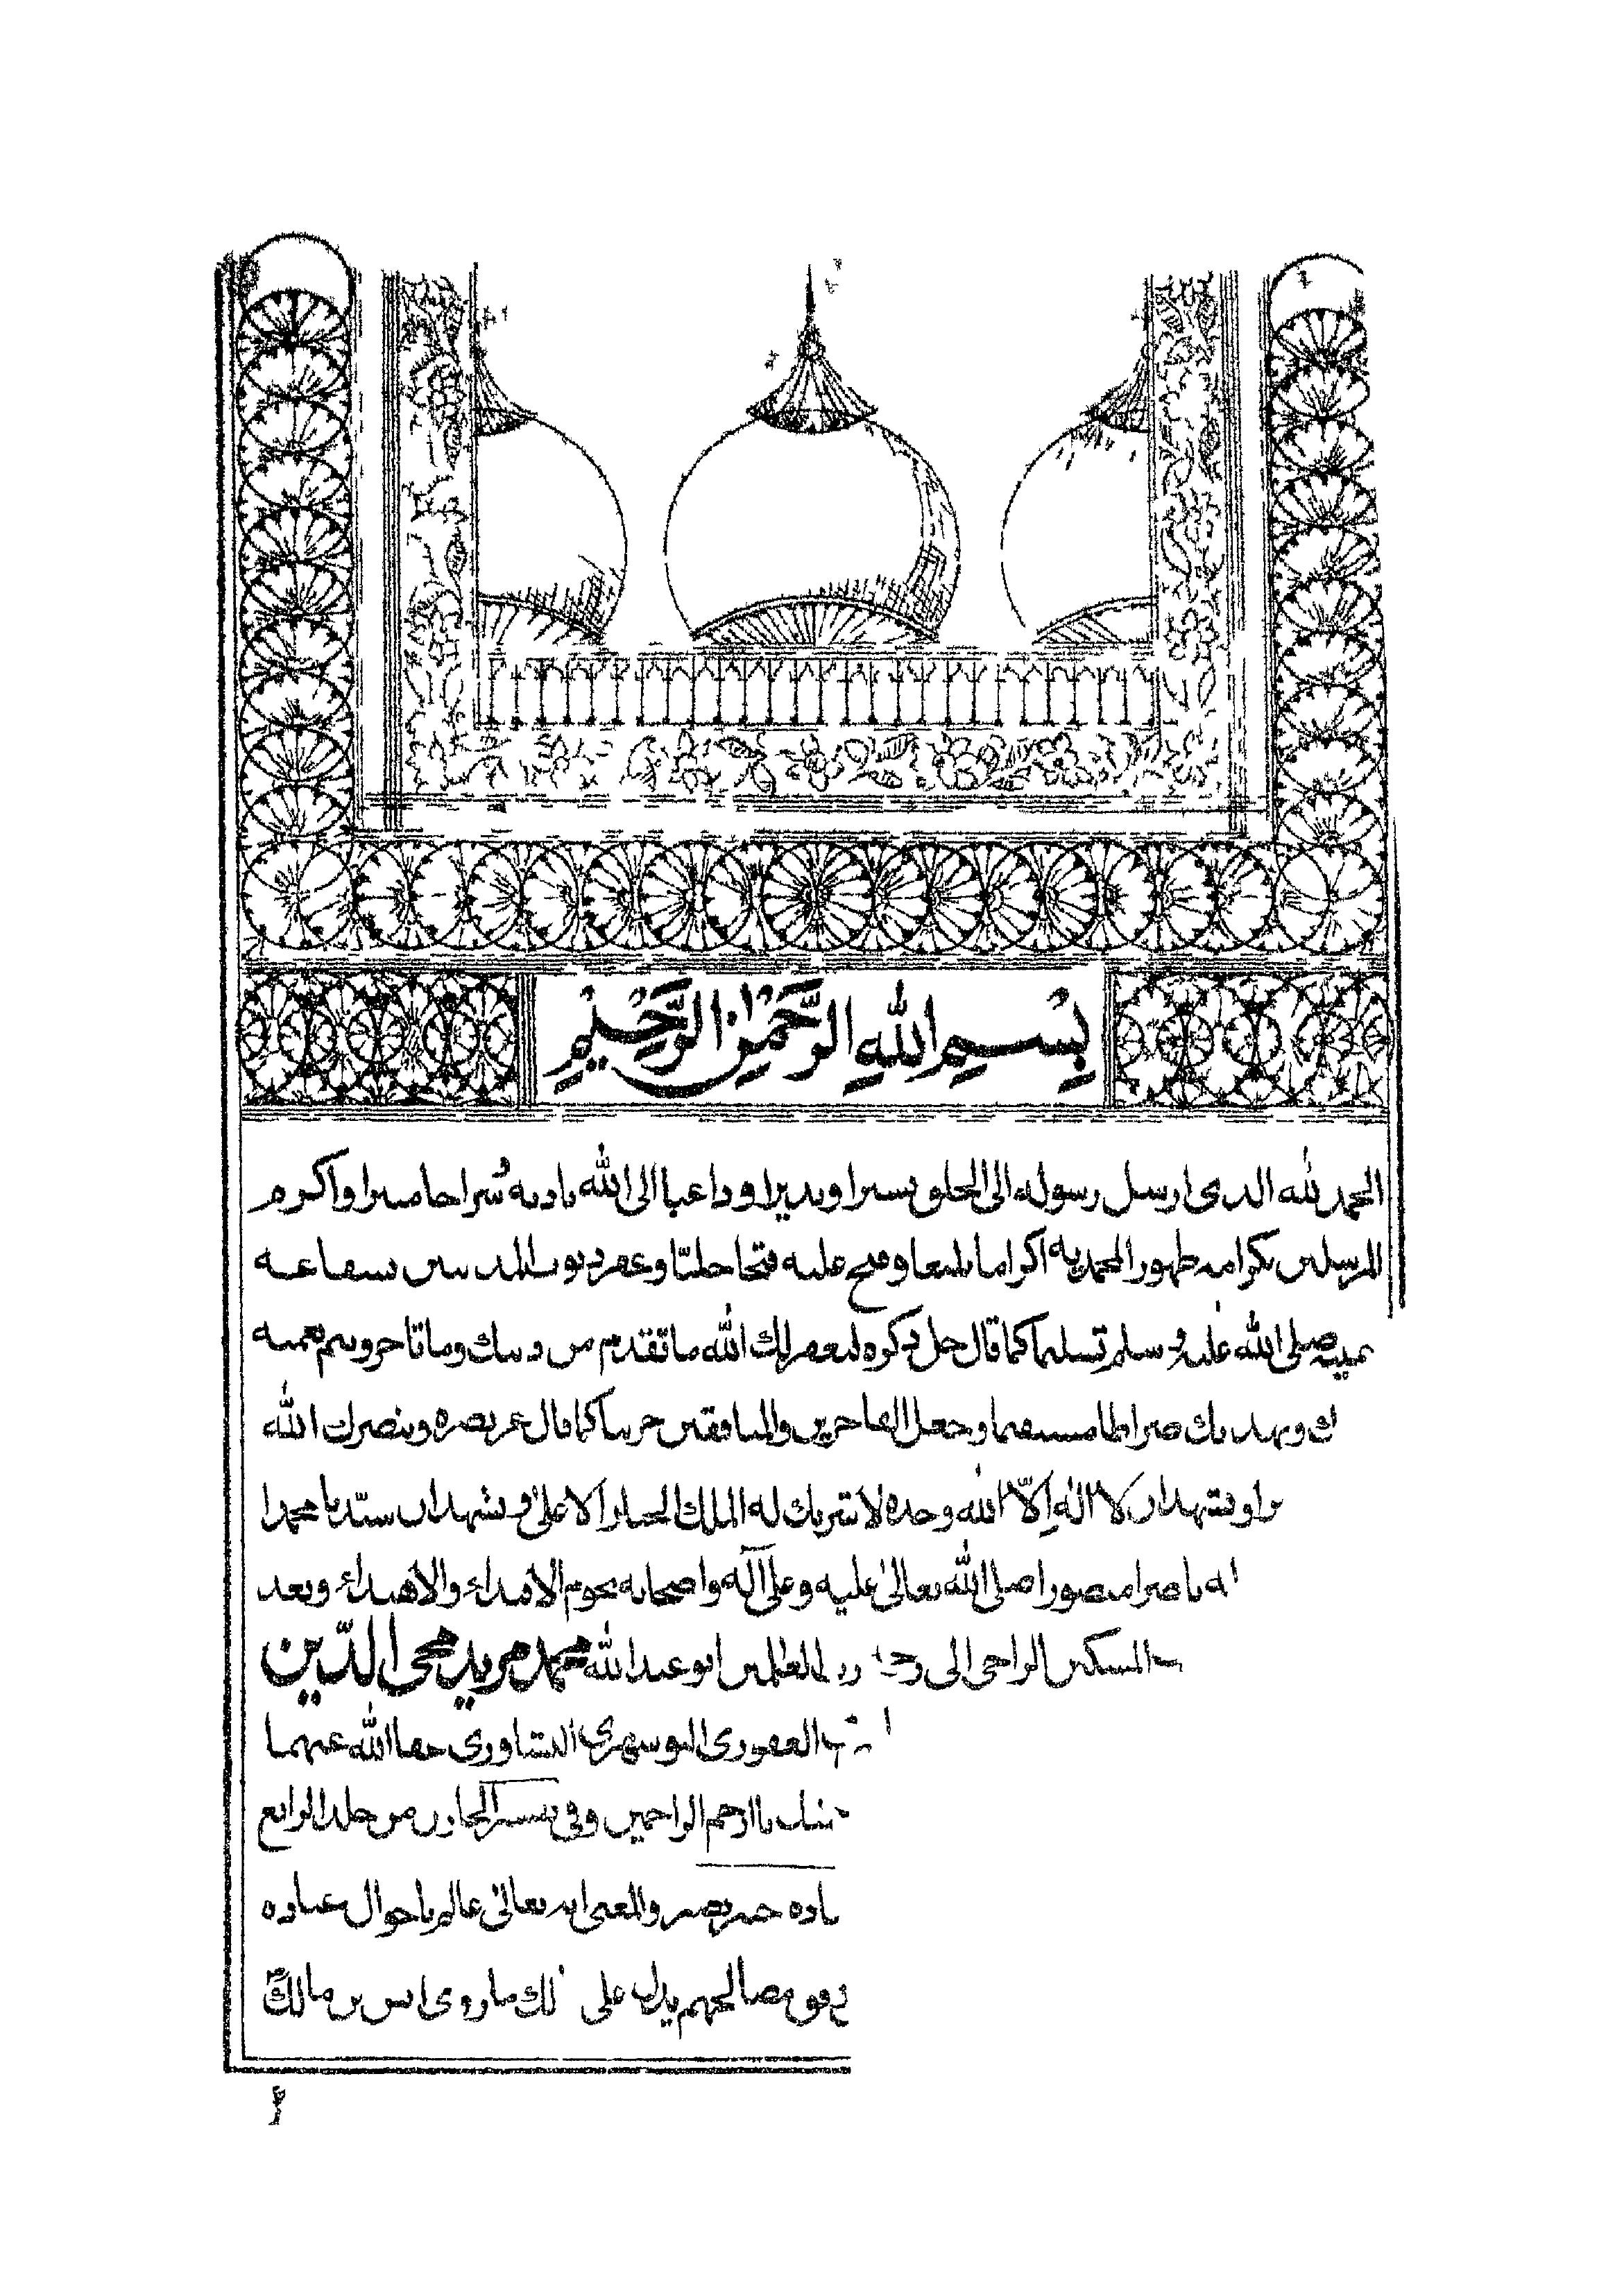 بِسْمِ اللهِ الرَّحْمٰنِ الرَّحِيْمِ
الحمد لله الذى ارسل رسوله الى الخلق بشيرا ونذيرا وداعيا الى الله باذنه سُراجا منيرا واكرم
المرسلين بكرامة ظهور المحمدية اكراما بليغا وفتح عليه فتحا جليّا وغفر ذنوب المذنبين بشفاعة
صلى الله عليه وسلم تسليما كما قال جل ذكره ليغفر لك الله ما تقدم من ذنبك وما تاخر ويتم نعمته
ك ويهديك صراطا مستقيما وجعل الفاجرين والمنافقين كما قال عز نصره وينصرك الله
را ونشهد ان لا اله الّا الله وحده لا شريك له الملك الجبار الاعلى ونشهد ان سيّدنا محمدا
ناصرا منصورا صلى الله تعالى عليه وعلى آله واصحابه نجوم الاقتداء والاهتداء وبعد
المسكين الراجى الى رب العلمين ابو عبد الله محمد مريد محى الدّين
الغفورى النوسهرى البشاورى عفا الله عنهما
يا ارحم الراحمين وفى تفسير الخازن من جلد الرابع
خبير بصير والمعنى انه تعالى عالم باحوال عباده
مصالحهم يدل على ما روى انس بن مالك